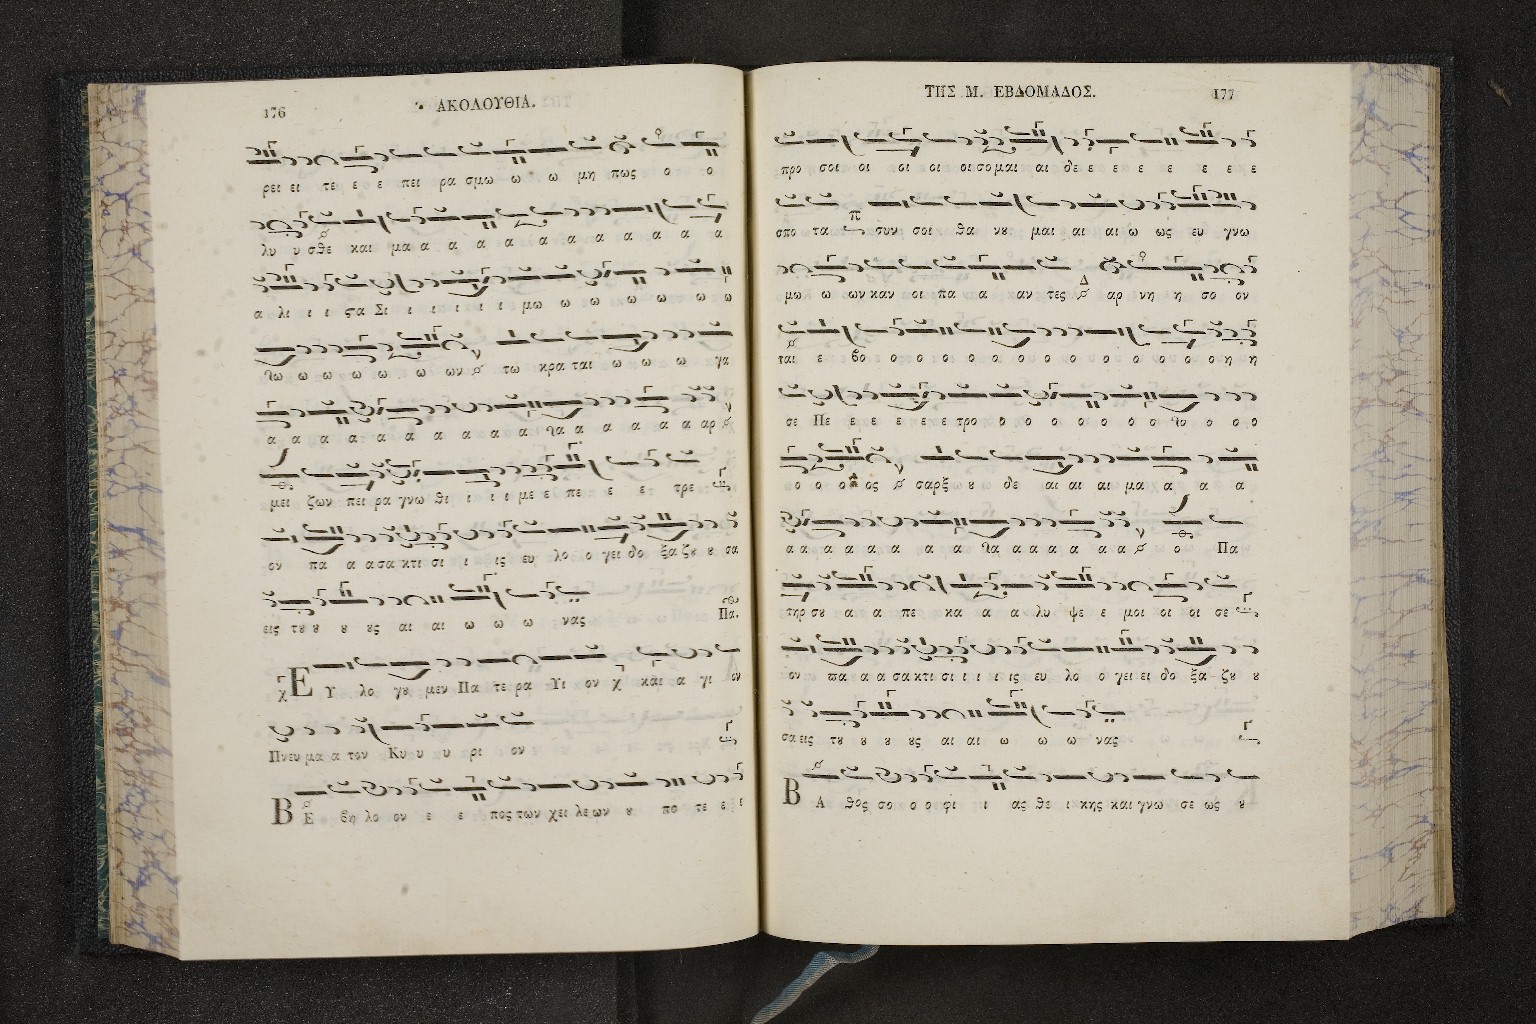 176
ΑΚΟΛΟΥΘΙΑ.
ρει ει τε ε ε πει ρα σμω ω ω μη πως ο ο
λυ υ σθε και μα α α α α α α α α α α α
α λι ι ι ϛα Σι ι ι ι ι ι μω ω ω ω ω ω
λω ω ω ω ω ω ων τω κρα ται ω ω ω γα
α α α α α α α α α α λα α α α α α αρ
μει ζων πει ρα γνω θι ι ι ι με ε πε ε ε τρε
ον πα α α σα κτι σι ι ις ευ λο ο γει δο ξα ζȣ ȣ σα
εις τȣ ȣ ȣ ȣς αι αι ω ω ω νας Πα.
ΕΥ λο γȣ μεν Πα τε ρα Υι ον και α γι ον
Πνευ μα α τον Κυ υ υ ρι ον
ΒΕ βη λο ον ε ε πος των χει λε ων ȣ πο τε ε ε
ΤΗΣ Μ. ΕΒΔΟΜΑΔΟΣ.
177
προ σοι οι οι οι οι σο μαι αι δε ε ε ε ε ε ε ε
σπο τα συν σοι θα νȣ μαι αι αι ω ως ευ γνω
μω ω ων καν οι πα α αν τες αρ νη η σο ον
ται ε βο ο ο ο ο ο ο ο ο ο ο ο ο ο η η
σε Πε ε ε ε ε ε τρο ο ο ο ο ο ο ο λο ο ο ο
ο ο ο ος σαρξ ȣ δε αι αι αι μα α α α
α α α α α α α α α λα α α α α α α ο Πα
τηρ σȣ α α πε κα α α λυ ψε ε μοι οι οι σε
ον πα α α σα κτι σι ι ι ι ις ευ λο ο γει ει δο ξα ζȣ ȣ
σα εις τȣ ȣ ȣ ȣς αι αι ω ω ω νας
ΒΑ θος σο ο ο φι ι ας θε ι κης και γνω σε ως ȣ